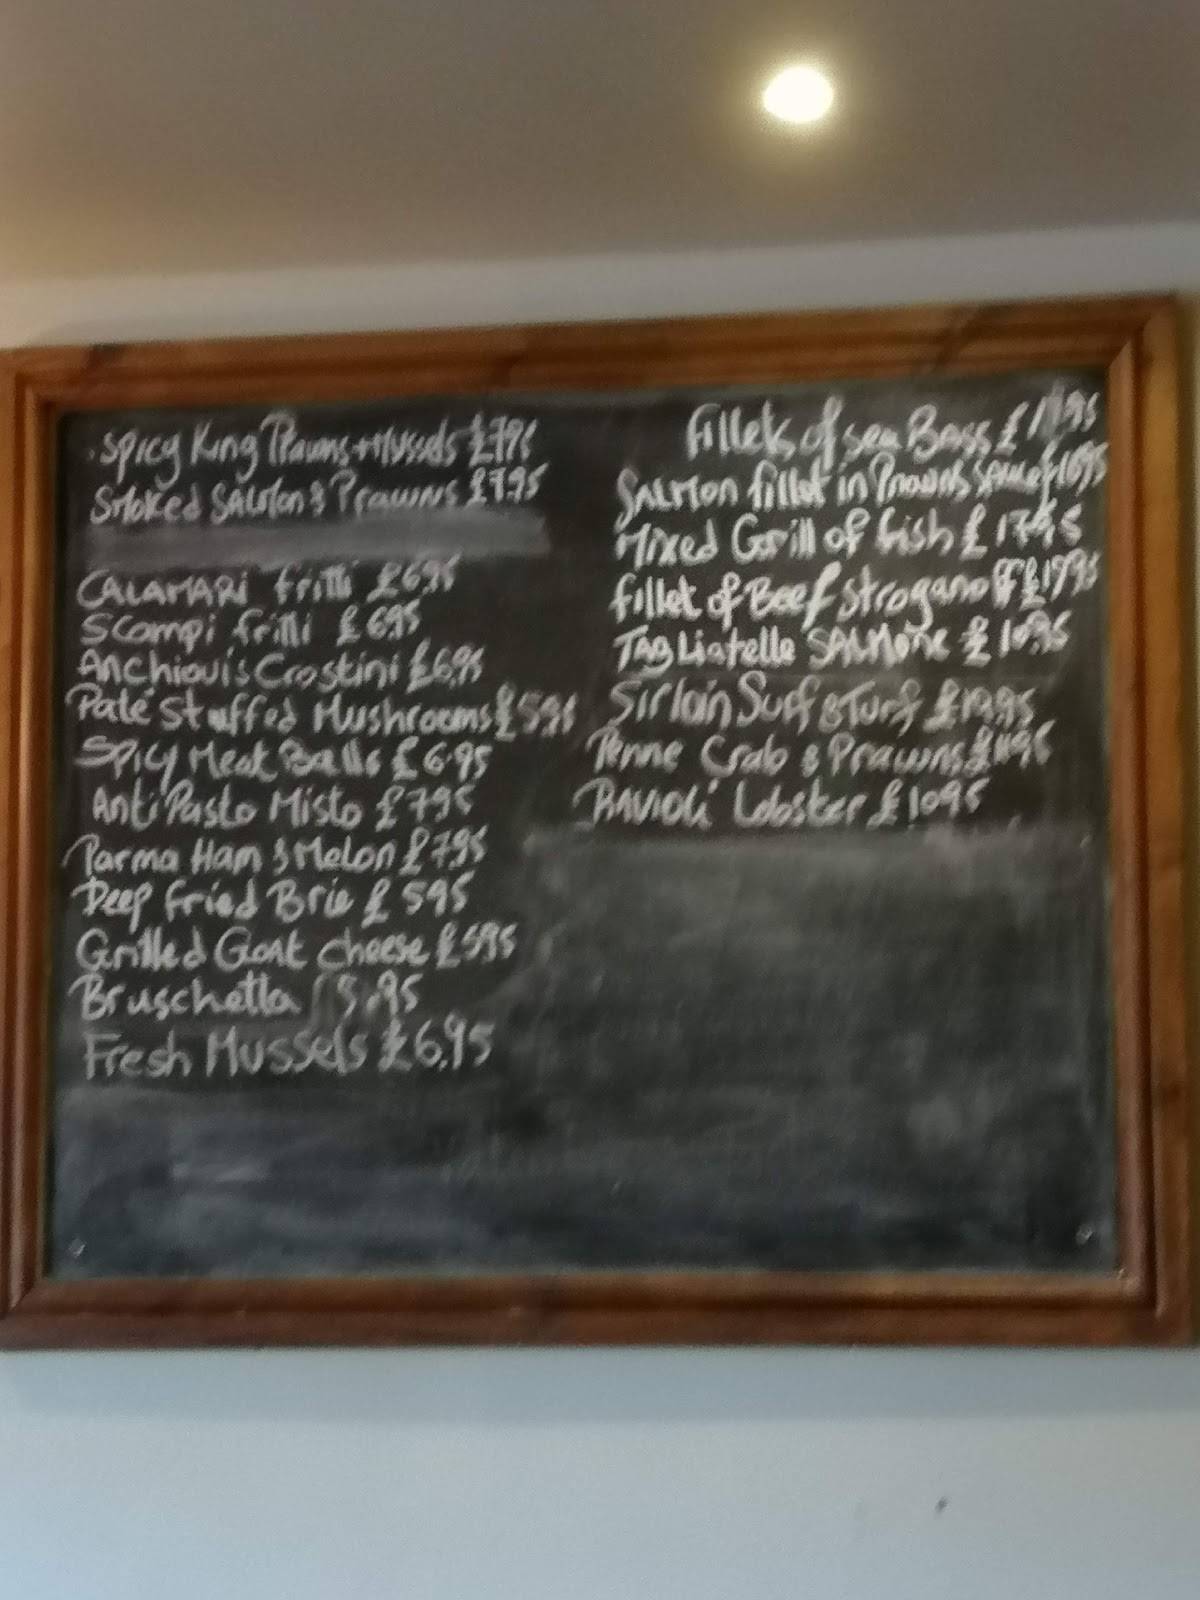 Spicy King Prawns + Mussels £7.95
Smoked Salmon & Prawns £7.95
CALAMARi fritti £6.95
Scampi fritti £6.95
Anchiovi's Crostini £6.95
Paté Stuffed Mushrooms £5.95
Spicy Meat Balls £6.95
Anti Pasto Misto £7.95
Parma Ham & Melon £7.95
Deep fried Brie £5.95
Grilled Goat cheese £5.95
Bruschetta 5.95
Fresh Mussels £6.95
Fillets of sea Bass
Salmon fillet in Prawns sauce
Mixed Grill of fish £17.95
fillet of Beef Stroganoff
TAgliatelle SALMONE £10.95
Sirloin Surf & Turf
Penne Crab & Prawns
RAVIOLi Lobster £10.95